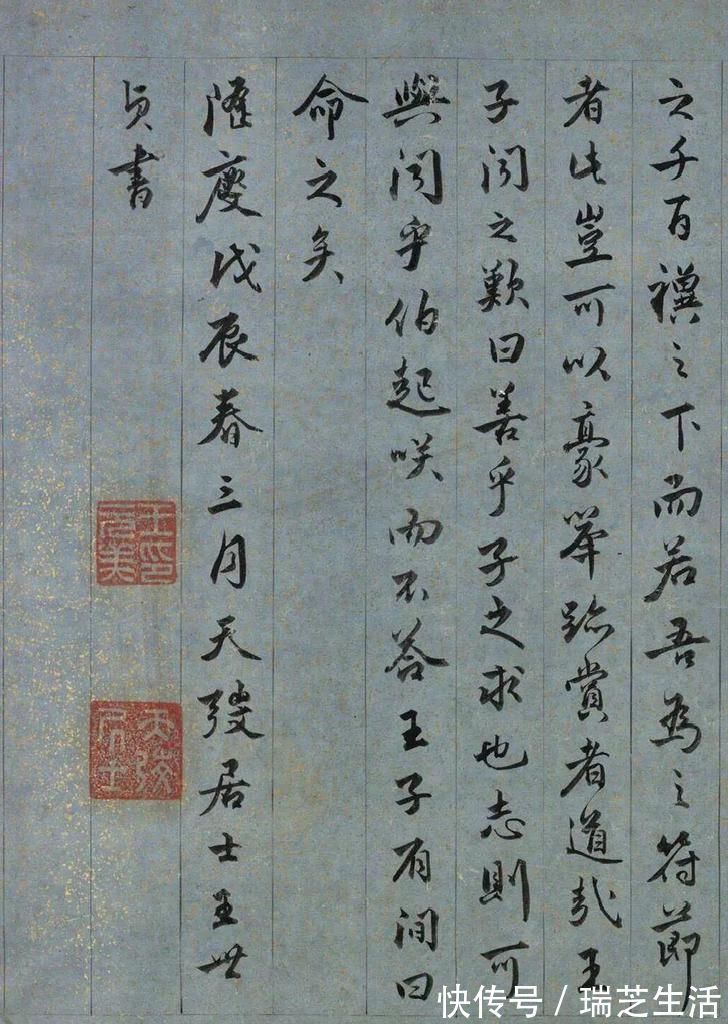 之千百禩之下而若吾為之符節
者此豈可以豪舉跡賞者道哉王
子聞之歎曰善乎子之求也志則可
與聞乎伯起咲而不答王子有間曰
命之矣
隆慶戊辰春三月天弢居士王世
貞書
王氏元美
天弢居士
快传号／瑞芝生活